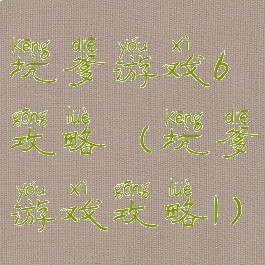 kēng diē yóu xì
坑爹游戏6
gōng lüè kēng diē
攻略（坑爹
yóu xì gōng lüè
游戏攻略1）